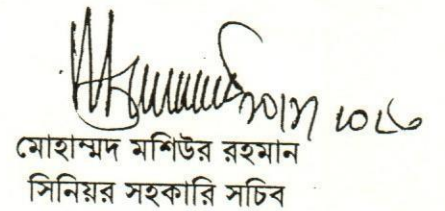 মোহাম্মদ মশিউর রহমান
সিনিয়র সহকারি সচিব